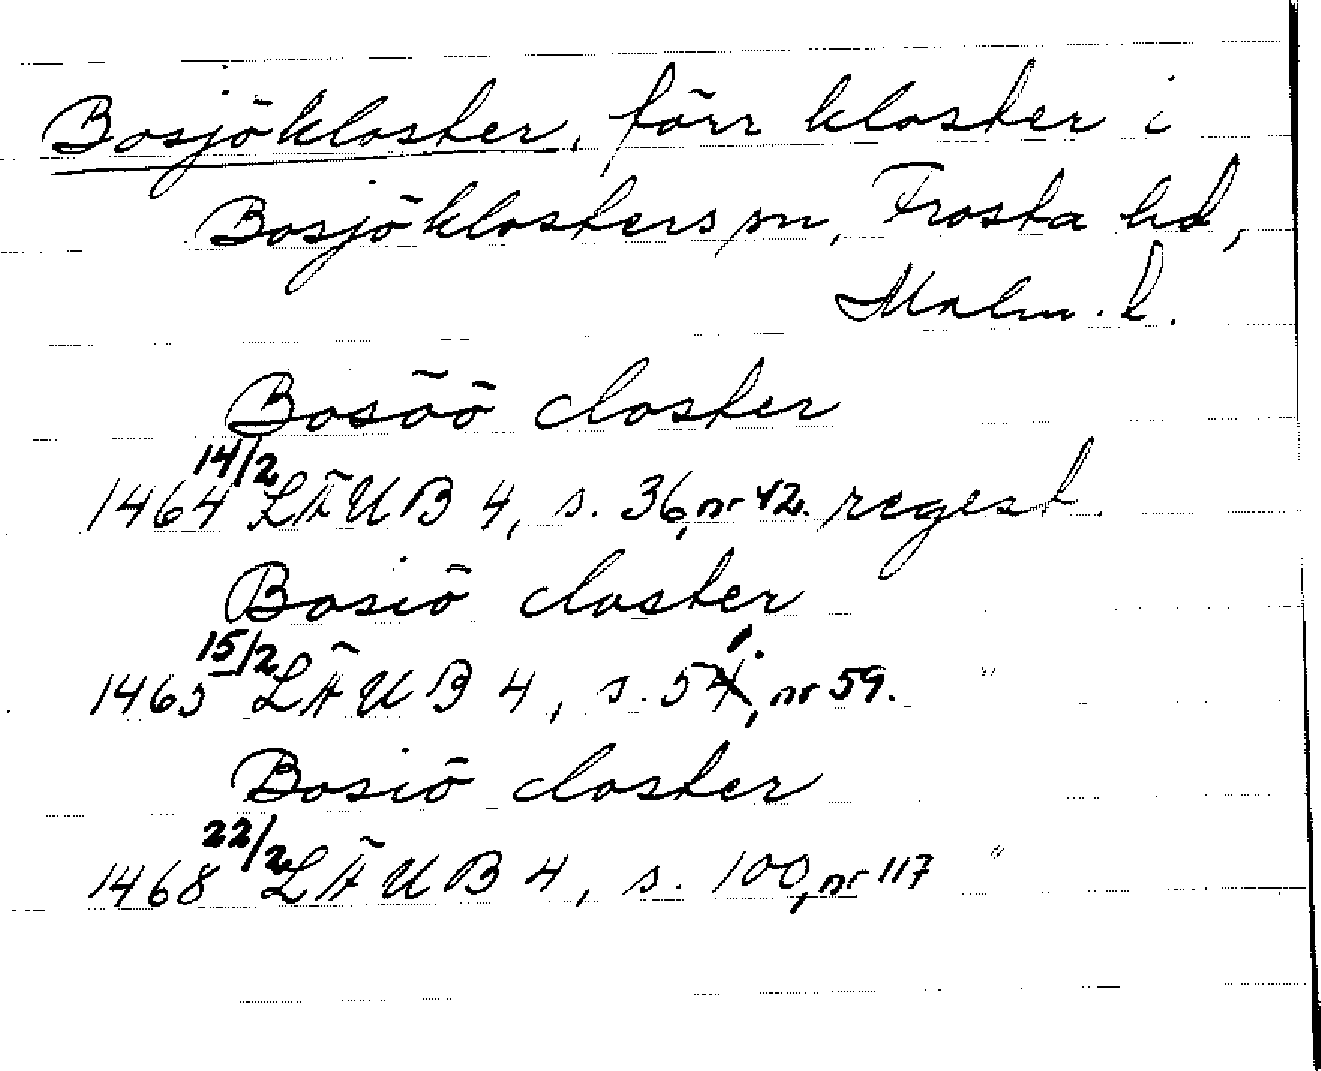 Bosjökloster, förr kloster i
Bosjöklosters sn, Frosta hd,
Malm. l.
Bosöö closter
1464 14/2 LÄUB 4, s. 36, nr 42. regest.
Bosiö closter
1465 15/2 LÄUB 4, s. 51, nr 59. "
Bosiö closter
1468 22/2 LÄUB 4, s. 100, nr 117 "